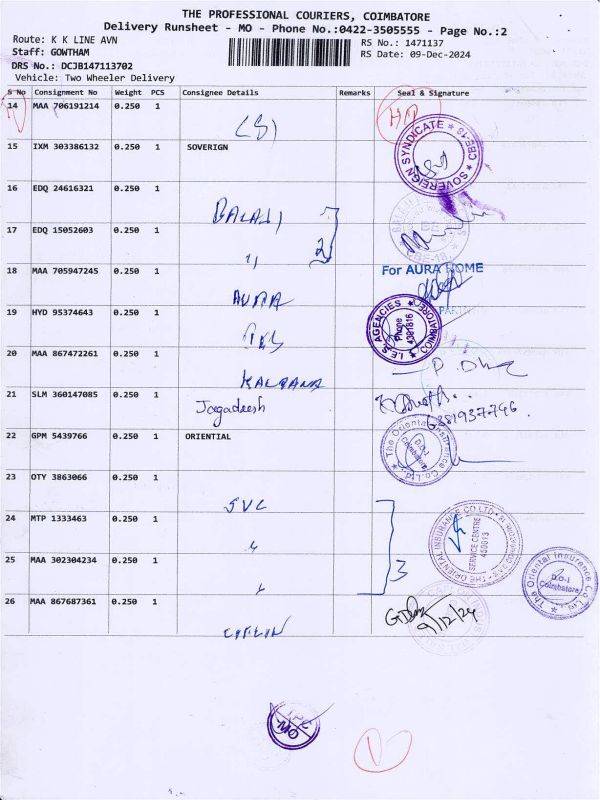 THE PROFESSIONAL COURIERS, COIMBATORE
Delivery Runsheet - MO - Phone No.:0422-3505555 - Page No.:2
Route: K K LINE AVN
Staff: GOWTHAM
DRS No.: DCJB147113702
Vehicle: Two Wheeler Delivery
RS No.: 1471137
RS Date: 09-Dec-2024
S No Consignment No Weight PCS Consignee Details Remarks Seal & Signature
14 MAA 706191214 0.250 1
15 IXM 303386132 0.250 1 SOVERIGN
SOVEREIGN SYNDICATE ★ CBE-18 ★
16 EDQ 24616321 0.250 1
BALAJI
17 EDQ 15052603 0.250 1
"
2
18 MAA 705947245 0.250 1
For AURA HOME
AURA
19 HYD 95374643 0.250 1
I.E.S AGENCIES ★ COIMBATORE ★
Phone
4391816
20 MAA 867472261 0.250 1
KALPANA
21 SLM 360147085 0.250 1
Jagadeesh
6381937746
22 GPM 5439766 0.250 1 ORIENTIAL
The Oriental Insurance Co. Ltd
D.O-I
Coimbatore
23 OTY 3863066 0.250 1
SVC
24 MTP 1333463 0.250 1
"
THE ORIENTAL INSURANCE CO LTD
SERVICE CENTRE
450013
25 MAA 302304234 0.250 1
"
3
The Oriental Insurance Co Ltd
D.O-I
Coimbatore
26 MAA 867687361 0.250 1
9/12/24
MO